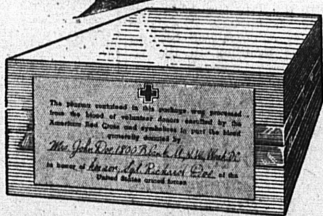 The plasma contained in this package was processed
from the blood of volunteer donors enrolled by the
American Red Cross and reproduces in part the blood
generously donated by
Mrs. John Doe 1800 B Bank St. N.W. Wash. D.C.
in honor of her son, Sgt. Richard Doe of the
United States armed forces